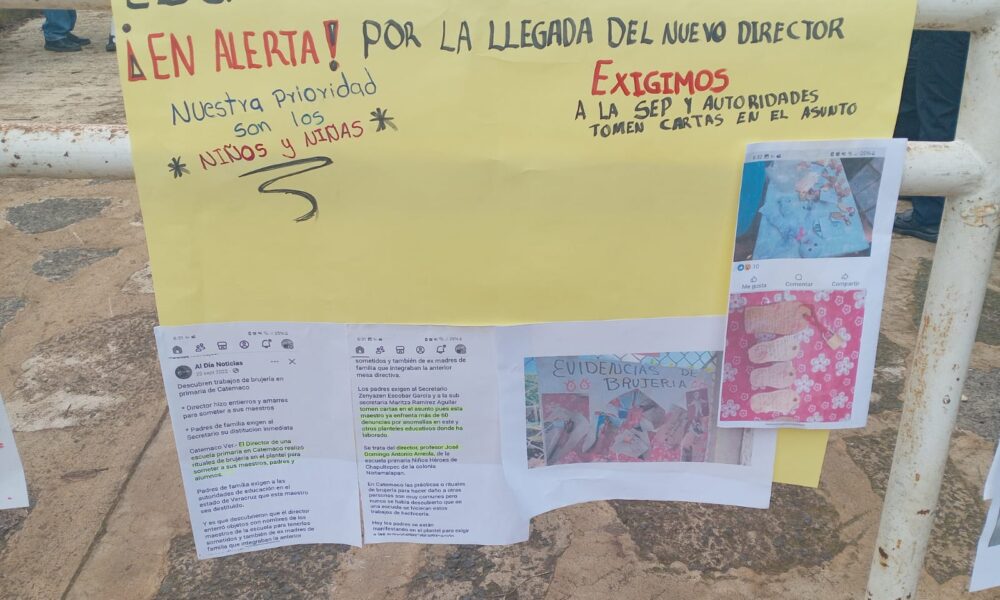 ¡EN ALERTA! POR LA LLEGADA DEL NUEVO DIRECTOR
Nuestra prioridad
son los
* NIÑOS Y NIÑAS *
EXIGIMOS
A LA SEP Y AUTORIDADES
TOMEN CARTAS EN EL ASUNTO
Al Día Noticias
Descubren trabajos de brujería en
primaria de Catemaco
* Director hizo entierros y amarres
para someter a sus maestros
* Padres de familia exigen al
Secretario su distitucion inmediata
Catemaco Ver.- El Director de una
escuela primaria en Catemaco realizó
rituales de brujería en el plantel para
someter a sus maestros, padres y
alumnos.
Padres de familia exigen a las
autoridades de educación en el
estado de Veracruz que este maestro
sea destituido.
Y es que descubrieron que el director
enterro objetos con nombres de los
maestros de la escuela para tenerlos
sometidos y también de ex madres de
familia que integraban la anterior
sometidos y también de ex madres de
familia que integraban la anterior
mesa directiva.
Los padres exigen al Secretario
Zenyazen Escobar García y a la sub
secretaria Maritza Ramírez Aguilar
tomen cartas en el asunto pues esta
maestro ya enfrenta más de 60
denuncias por anomalías en este y
otros planteles educativos donde ha
laborado.
Se trata del director, profesor José
Domingo Antonio Arreola, de la
escuela primaria Niños Héroes de
Chapultepec de la colonia
En Catemaco las prácticas o rituales
de brujería para hacer daño a otras
personas son muy comunes pero
nunca se había descubierto que en
una escuela se hicieran estos
trabajos de hechicería.
Hoy los padres se están
manifestando en el plantel para exigir
EVIDENCIAS DE
BRUJERIA
Me gusta
Comentar
Compartir